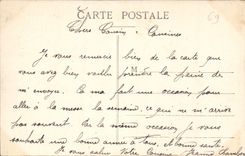 CARTE POSTALE
Chers Cousin & Cousines
Je vous remercie bien de la carte que
vous avez bien voulu prendre la peine de
m'envoyer. Ça m'a fait une occasion pour
aller à la messe la semaine, ce que ne m'arrive
pas souvent. Par la même occasion je vous
souhaite une bonne année à tous, et bonne santé.
Je vous salue Votre Cousin